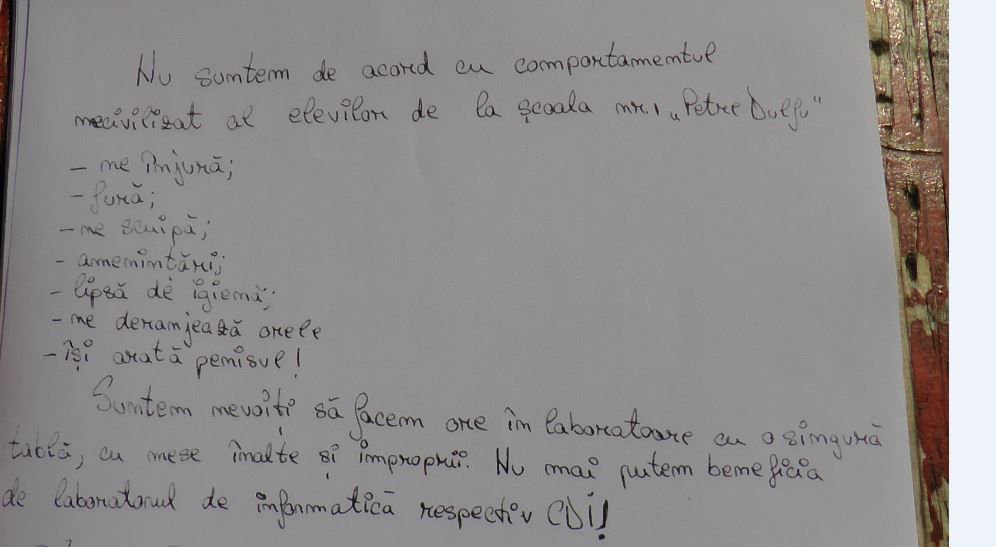 Nu suntem de acord cu comportamentul
necivilizat al elevilor de la școala nr.1 „Petre Dulfu"
- ne înjură;
- fură;
- ne scuipă;
- amenințări;
- lipsă de igienă;
- ne deranjează orele
- își arată penisul!
Suntem nevoiți să facem ore în laboratoare cu o singură
tablă, cu mese înalte și improprii. Nu mai putem beneficia
de laboratorul de informatică respectiv CDI!